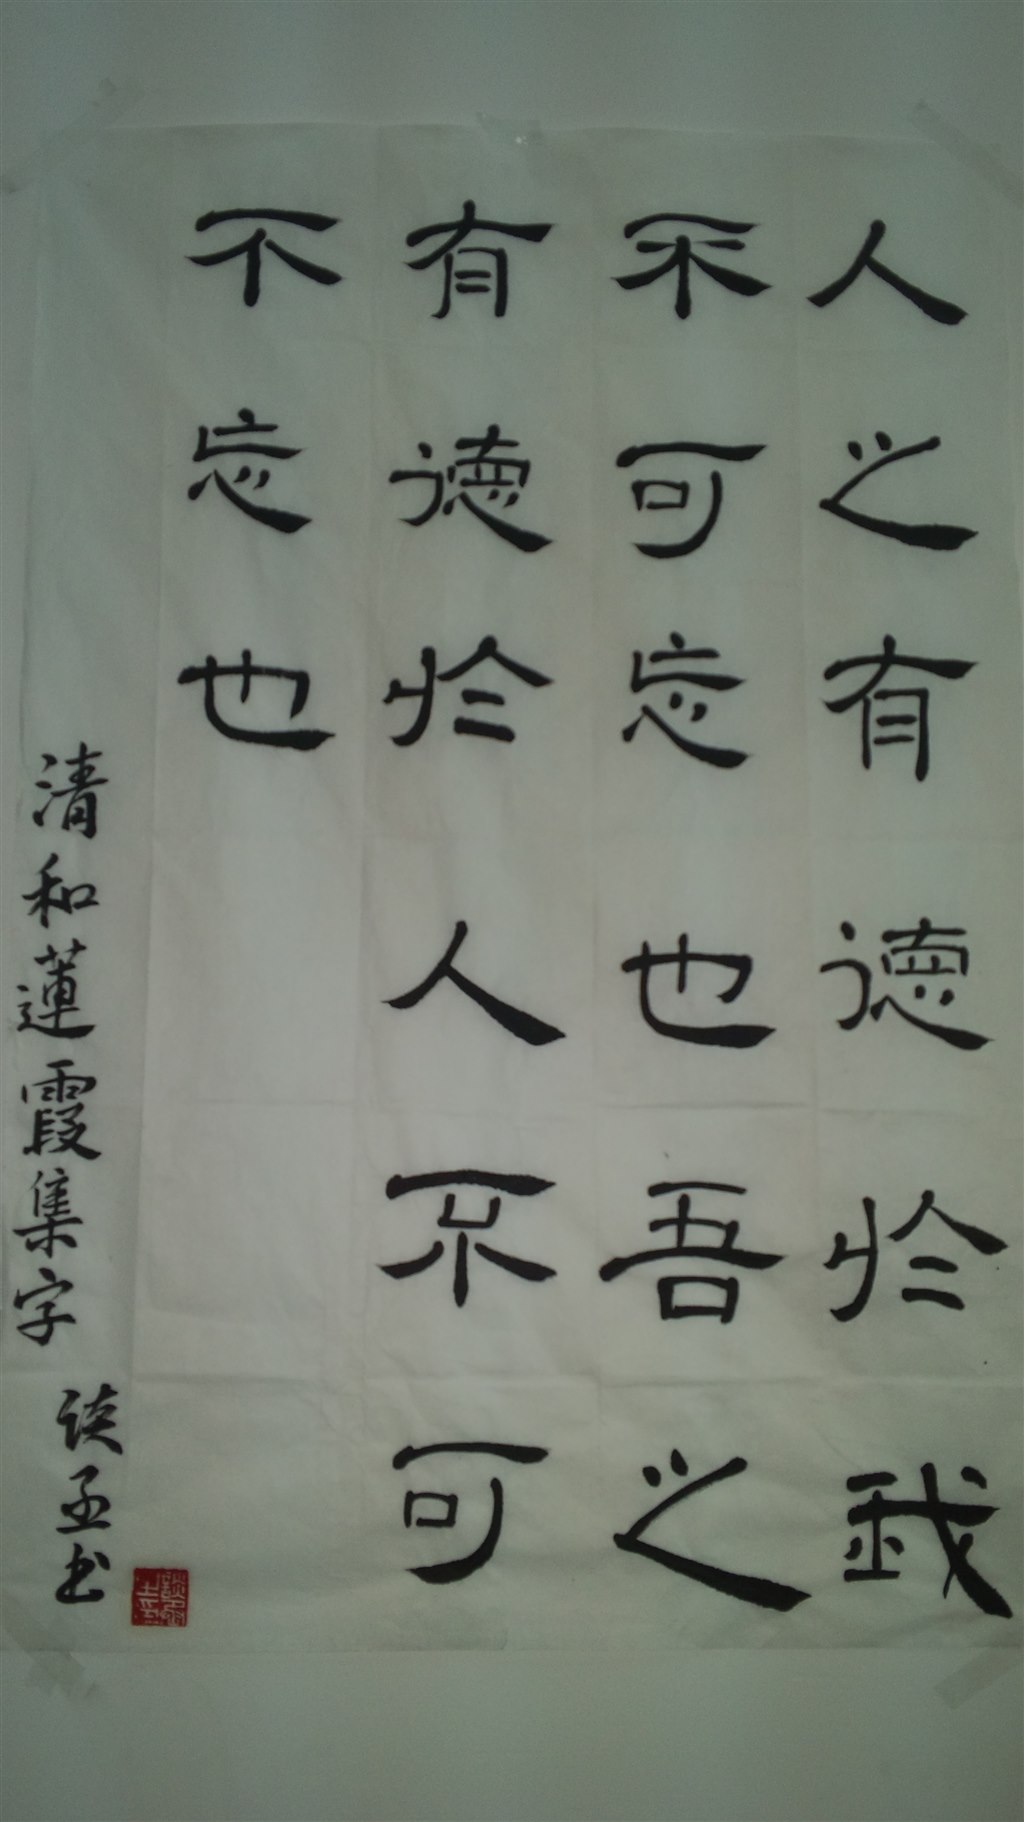 人之有德於我
不可忘也吾之
有德於人不可
不忘也
清和蓮霞集字
談孟书